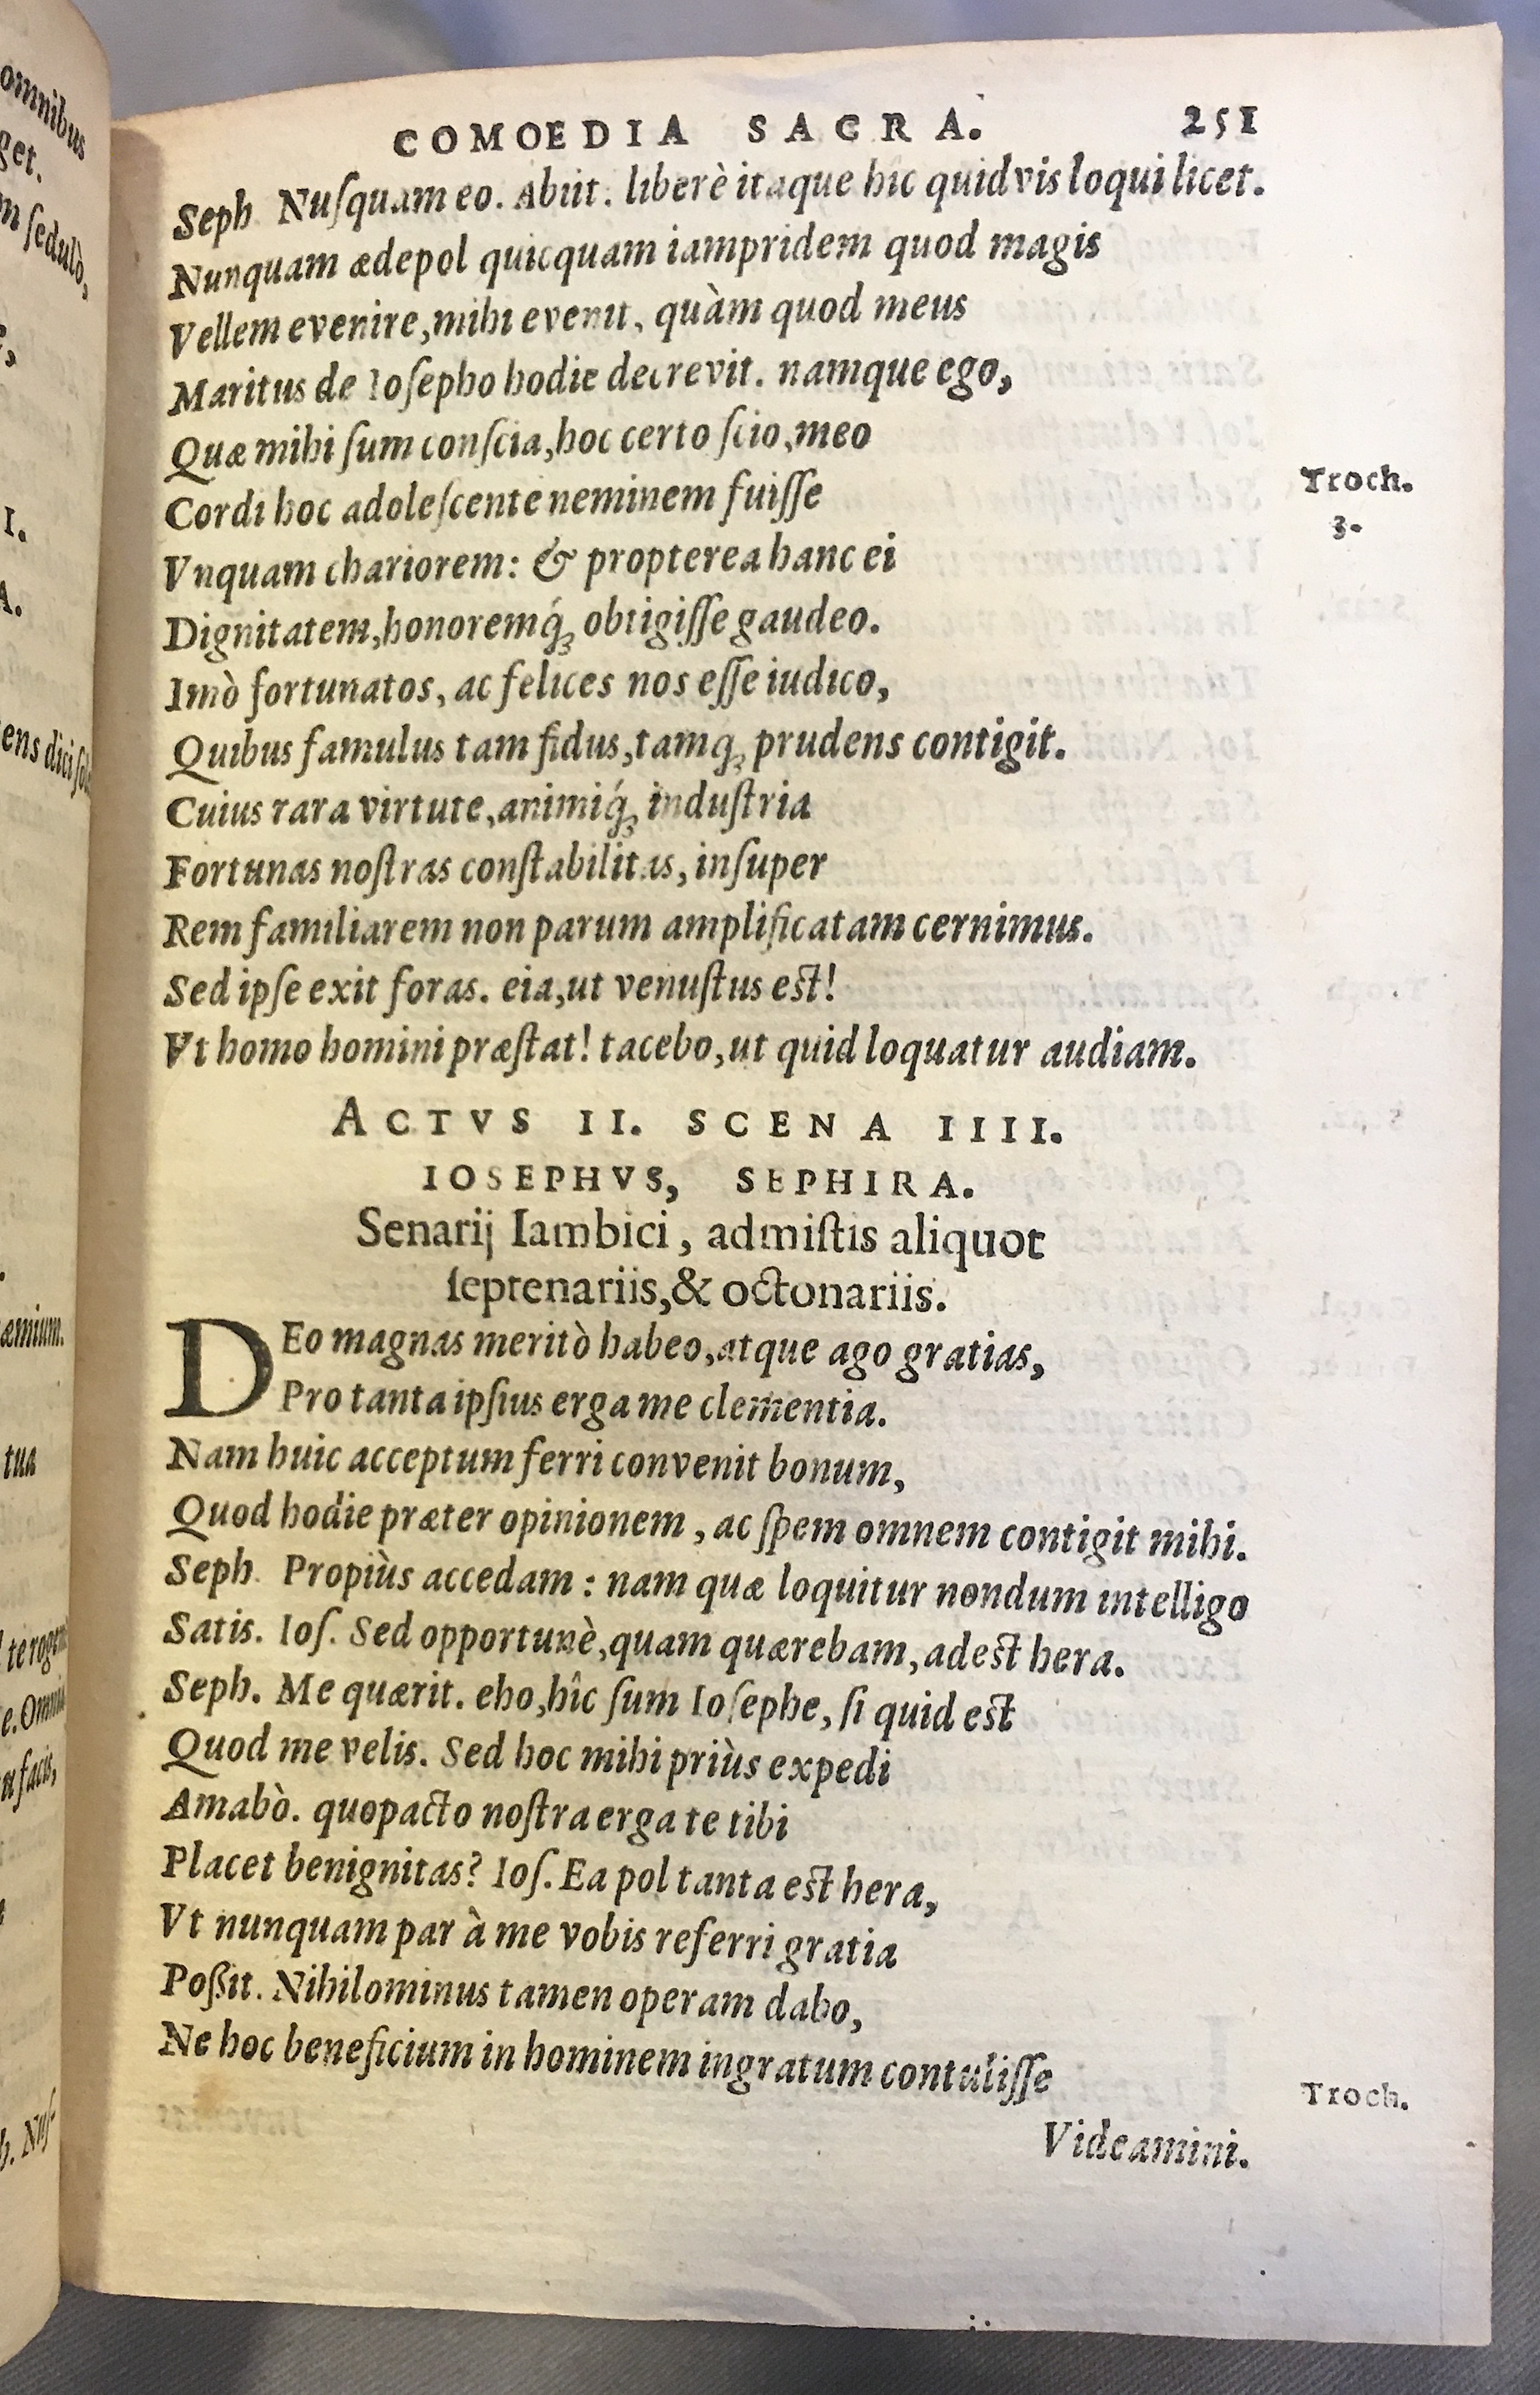 COMOEDIA SACRA. 251
Seph. Nuſquam eo. Abiit. liberè itaque hîc quidvis loqui licet.
Nunquam ædepol quicquam iampridem quod magis
Vellem evenire, mihi evenit, quàm quod meus
Maritus de Ioſepho hodie decrevit. namque ego,
Quæ mihi ſum conſcia, hoc certo ſcio, meo
Cordi hoc adoleſcente neminem fuiſſe
Troch.
3.
Vnquam chariorem: & propterea hanc ei
Dignitatem, honoremq́ꝫ obtigiſſe gaudeo.
Imò fortunatos, ac felices nos eſſe iudico,
Quibus famulus tam fidus, tamqꝫ prudens contigit.
Cuius rara virtute, animiq́ꝫ induſtria
Fortunas noſtras conſtabilitas, inſuper
Rem familiarem non parum amplificatam cernimus.
Sed ipſe exit foras. eia, ut venuſtus eſt!
Vt homo homini præſtat! tacebo, ut quid loquatur audiam.
ACTVS II. SCENA IIII.
IOSEPHVS, SEPHIRA.
Senarij Iambici, admiſtis aliquot
ſeptenariis, & octonariis.
DEo magnas meritò habeo, atque ago gratias,
Pro tanta ipſius erga me clementia.
Nam huic acceptum ferri convenit bonum,
Quod hodie præter opinionem, ac ſpem omnem contigit mihi.
Seph. Propiùs accedam: nam quæ loquitur nondum intelligo
Satis. Ioſ. Sed opportunè, quam quærebam, adeſt hera.
Seph. Me quærit. eho, hîc ſum Ioſephe, ſi quid eſt
Quod me velis. Sed hoc mihi priùs expedi
Amabò. quopacto noſtra erga te tibi
Placet benignitas? Ioſ. Ea pol tanta eſt hera,
Vt nunquam par à me vobis referri gratia
Poßit. Nihilominus tamen operam dabo,
Ne hoc beneficium in hominem ingratum contuliſſe
Troch.
Videamini.